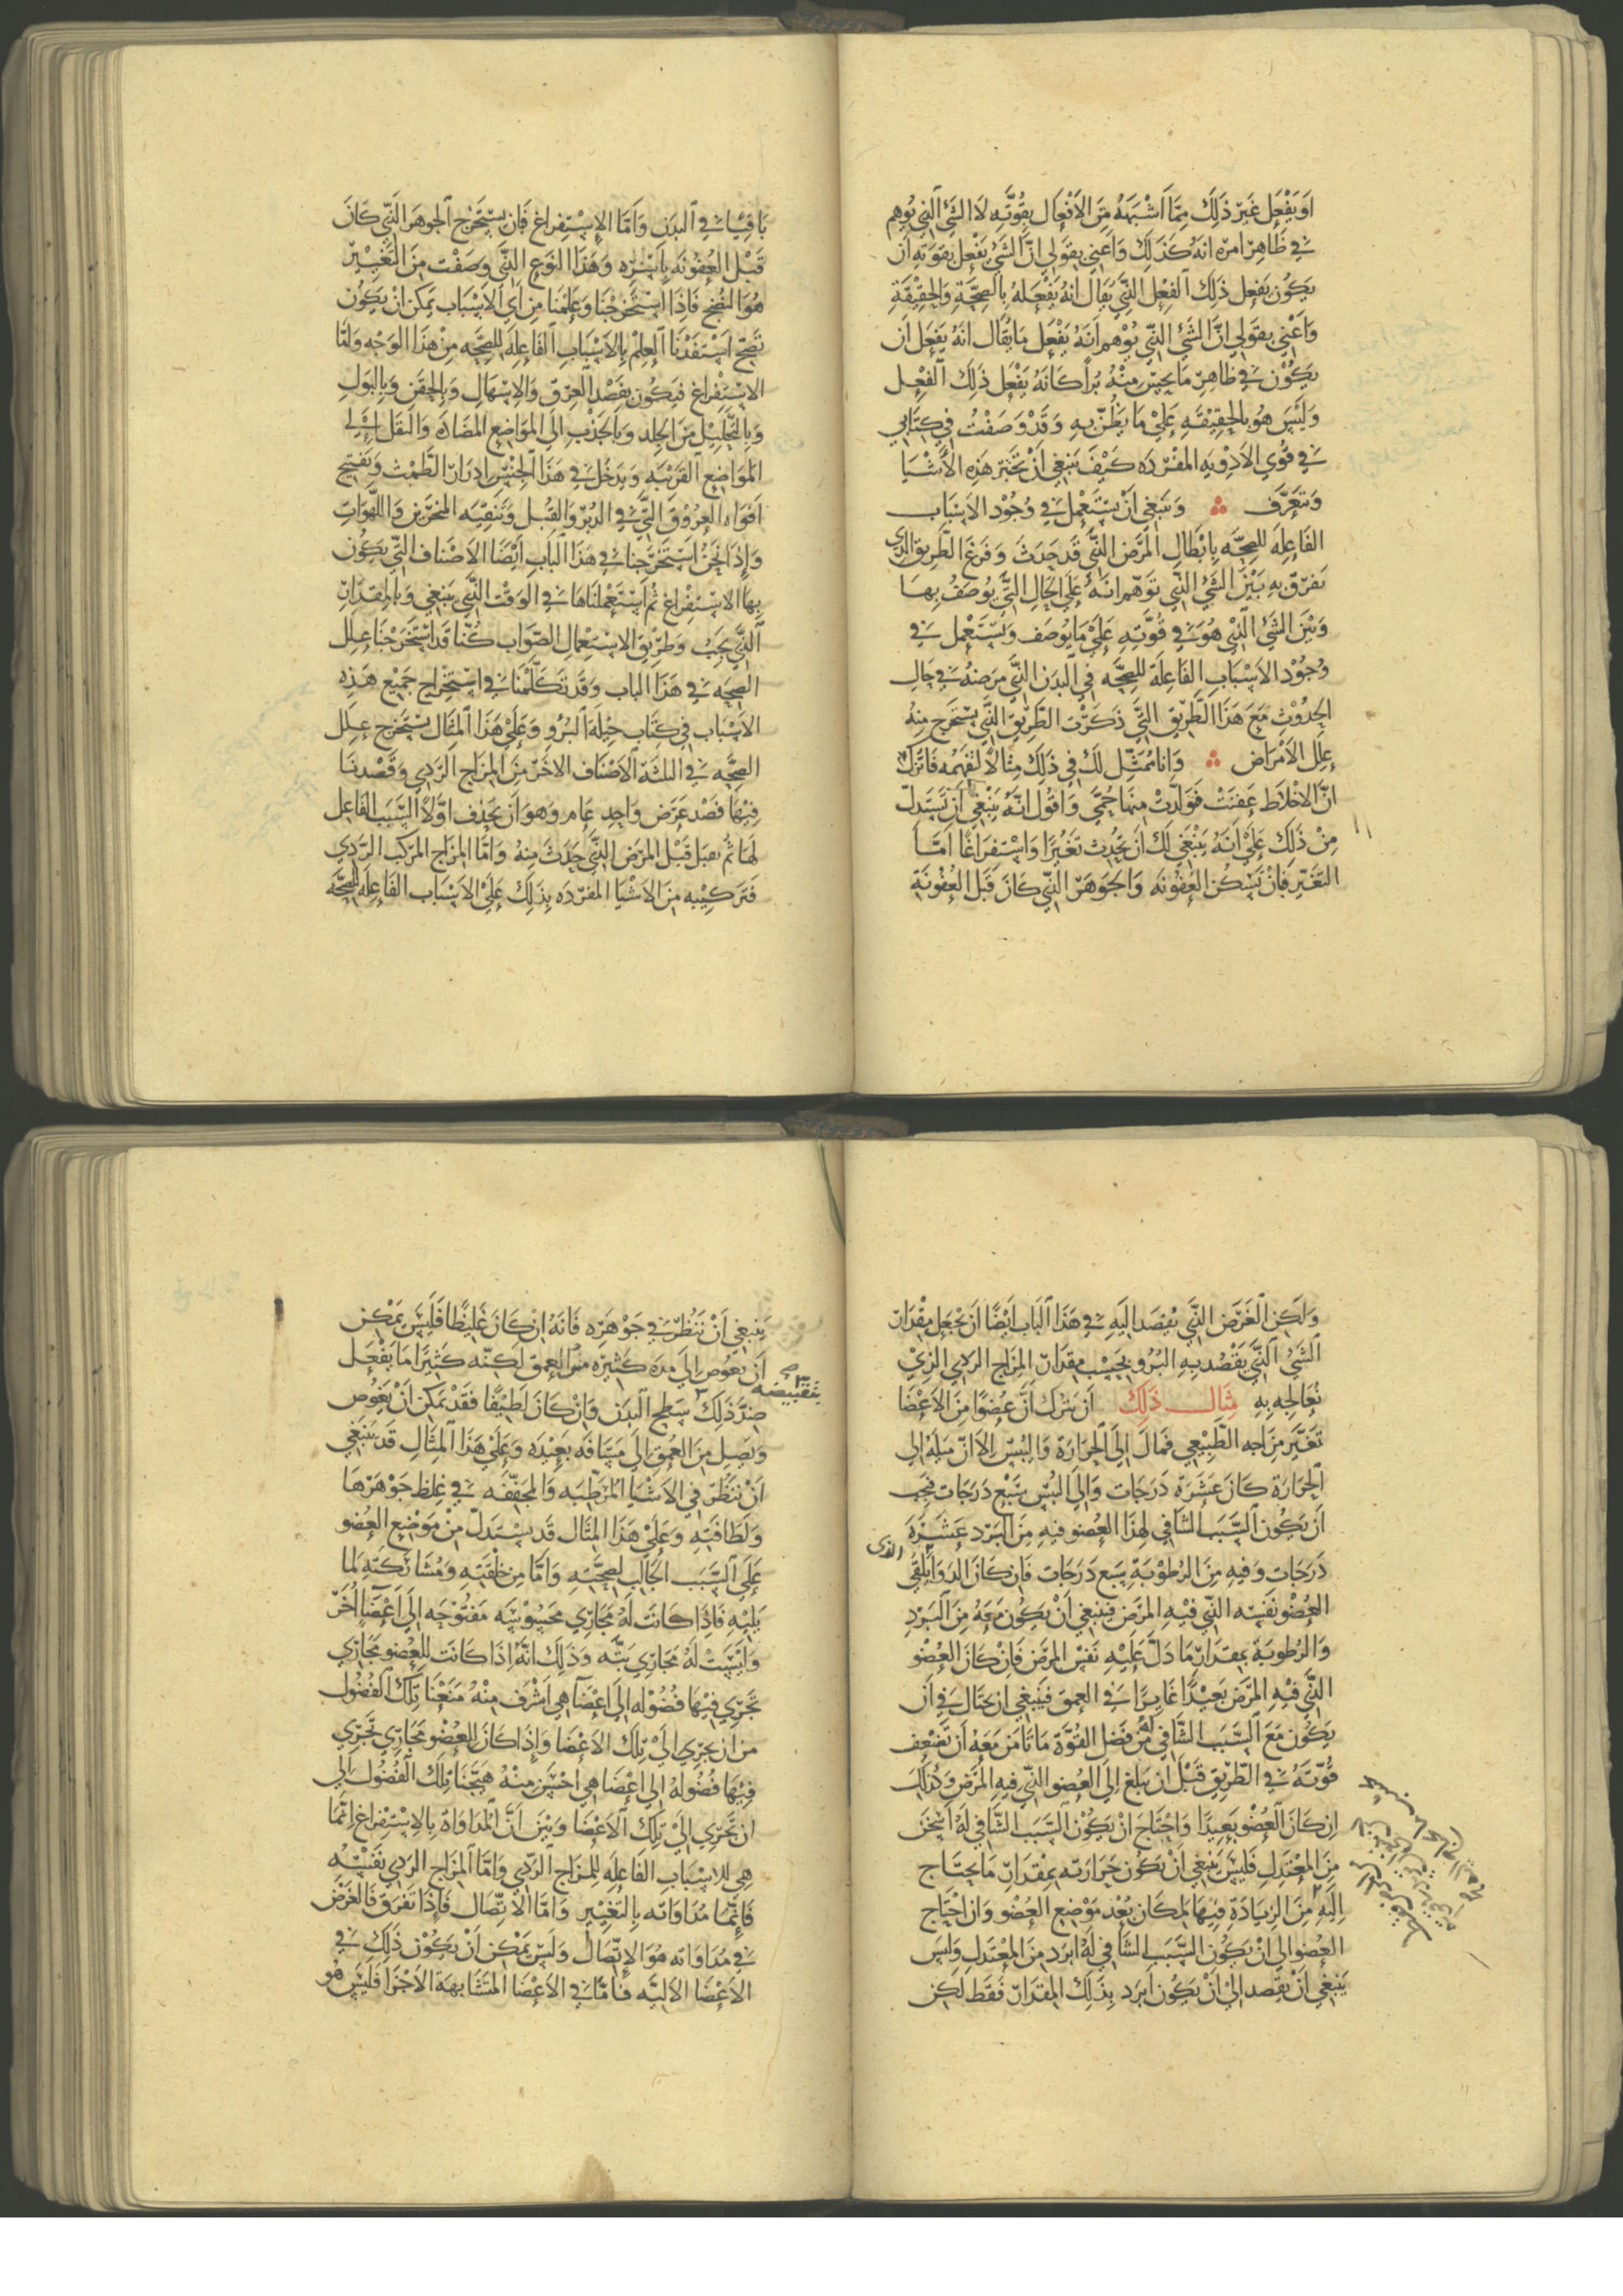 اَو يَفْعَل غَيرَ ذَلِكَ مِمَّا اَشْبَهَهُ مِنَ الاَفْعَال بِقُوَّتِهِ لَا الشَّئ الَّذِي يُوهِم
في ظَاهِر امرِه انهُ كَذَلِكَ وَاَعني بقَولي انَّ الشَّئ يَفْعَل بقوَته اَن
يكُون يَفعل ذَلِكَ الفِعل الَّذِي يقَال انهُ يَفْعَلهُ بِالصِحَّةِ وَالحَقِيْقَةِ
وَاَعْنِي بِقَولي انَّ الشَئ الَّذي يُوْهِم اَنهُ يَفْعَل مَا يُقَال انَهُ يَفعَل اَن
يكُوْن في ظَاهِر مَا يحسّ مِنْهُ يُرا كَانَهُ يَفْعَل ذَلِكَ الفِعْل
وَلَيْسَ هُو بِالحَقِيْقَةِ عَلَيْ مَا يُظَنّ بِهِ وَقَدْ وَصَفْتُ في كِتَابي
في قُوَي الاَدْوِيَه المفْرَده كَيْفَ يَنبَغي اَنْ تختبَر هَذِهِ الاَشْيَا
وَتتعَرَّف وَيَنبَغِي اَنْ يُسْتَعْمَل في وُجُوْد الاَسْبَاب
الفَاعِلَه للصِحَّه بِابْطَالِ المَرَض الَّذِي قَد حَدَثَ وَفَرغَ الطَّرِيق الذِي
نفرّق بِهِ بَيْنَ الشَّئ الَّذِي تَوَهَّم انَهُ عَلَي الحَالِ الَّتي يُوصَفُ بِهَا
وَبَيْنَ الشَيْ الَّذِي هُوَ في قُوَّتِهِ عَلَي مَا يُوصَف وَيُسْتَعْمل في
وُجُوْد الاَسْبَابِ الفَاعِلَة للِصِحَّه فِي البَدَن الَّذِي مَرَضهُ في حَالِ
الحدُوْثِ مَعَ هَذَا الطَّرِيْقِ الَّتي ذَكَرْتُ الطَّرِيْق الَّذِي يسْتَخرج مِنهُ
عِلَل الاَمْرَاض وَانا مُمَثِّل لَكَ فِي ذَلِكَ مِثَالًا لتَفهَمه فَاترُكْ
انَّ الاَخْلَاط عَفنَتْ فَوَلَّدتْ مِنهَا حُمَّي وَاقُول انَّهُ يَنْبَغِي اَنْ يُسْتَدَلّ
مِنْ ذَلَكَ عَلَيْ انَهُ يَنْبَغي لَكَ اَن تُحْدِث تَغيُّرًا وَاسْتفرَاغًا اَمَّا
التَغَيّر فَاَنْ تسْكن العُفُونَه وَالجَوهَر الَّذِي كَانَ قَبَل العُفُونَةِ
بَاقيًا في اَلبدَنِ وَاَمَّا الاِسْتِفراغ فَاَن يسْتَخْرِج الجَوهَر الَّذِي كَانَ
قَبْل العُفُونَه بِاَسْرِهِ وَهَذَا النَوع الَّذي وَصَفْت مِنَ التَغْيِيْر
هُوَ النُضْج فَاِذَا اسْتَخْرجْنَا وَعَلِمْنَا مِن اَيِ الاَسْبَاب يمكن اَنْ يَكُوْن
نضج اسْتفَدْنَا العِلمْ بِالاَسْبَابِ الفَاعِلَه للصِحَّه مِنْ هَذَا الوَجْه وَامَّا
الاِسْتِفْراغ فيَكُون بفَصْد العِرْقِ وَالاِسْهَالِ وَبِالحقَن وَبِالبَول
وَبِالتَّحْلِيْل مِنَ الجِلد وَبِالجَذْب الَى المَوَاضِع المضَادَه وَالنقل اِلَى
المَوَاضِع القَريْبَه وَيَدخُل في هَذَا الجِنْس اِدرَار الطَمْث وَتَفتِيح
اَفوَاه العرُوقِ الَّتي في الدُبْر وَالقُبُل وَتَنقِيَه المنخرَين وَاللهَوَاتِ
وَاِذَا نَحنُ اسْتَخرَجنا في هَذَا البَابِ اَيْضًا الاَصْنافَ الَّتي يَكُون
بِهَا الاِسْتِفْرَاغ ثُمَّ اسْتَعْمَلنَاهَا في الوَقْتِ الَّذي يَنبَغي وَبِالمِقدَار
الَّذِي يَجِبُ وَطَرِيْقِ الاِسْتِعمَالِ الصَّوَاب كُنَّا قَد اسْتَخرجْنَا عِلَل
الصِحَه في هَذَا الباب وَقَد تَكَلَّمنَا في اسْتِخرَاج جَمِيْع هَذِه
الاَسْبَاب فِي كتَاب حِيْلَه البُرُو وَعَلَيْ هَذَا المثَال يُسْتَخرج عِلَل
الصِحَّه في الثلثَة الاَصْنَاف الاُخَر مِنَ المزَاج الرَّدي وَقَصْدنَا
فِيْهَا قَصْد غَرَض وَاحِد عَام وَهوَ اَن نحذف اوَّلًا السَّبَب الفَاعِل
لَهَا ثُم نقبَل قَبْل المَرَض الَّذي حَدَثَ مِنهُ وَامَّا المزَاج المركَّب الرَّدِي
فَتَركِيْبه مِنَ الاَشْيَا المفرَدَه يدلكَ عَلَيْ الاَسْبَاب الفَاعِلَه للصِحَّه
وَلَكِن الغَرَض الَّذي يُقصَد اليَه في هَذَا البَاب اَيْضًا اَن نجْعَل مِقْدَار
الشَئ الَّذي نقصْد بِهِ البُرو بِحَسْب مِقدَار المِزَاج الرَدِي الَّذِيْ
نعَالِجه بِهِ مِثال ذَلِكَ اَن نترك اَنَّ عُضْوًا مِنَ الاَعْضَا
تَغَيَّر مِزَاجه الطَّبِيْعِي فَمَال اِلَى الحَرَارَة وَاليُبْس الاَ انّ مَيلَهُ اِلي
الحَرَارَة كَانَ عَشَرَة دَرَجَات وَاِلَى اليُبْسِ سَبْع دَرَجَات فَيجبُ
اَن يَكُون السَّبَب الشَافي لِهذَا العُضو فيهِ مِنَ البَرَد عَشَرَة
دَرَجَات وَفيه مِنَ الرُطُوْبَةِ سَبع دَرَجَات فَاِن كَانَ الدَوَا يَلقَي الذي
العضْوَ نَفسَه الَّذي فيْهِ المرَض فَيَنبَغي اَنْ يكُون مَعَهُ مِنَ البَرْدِ
وَالرُطوبَة بمقدَار مَا دَلَّ عَلَيهِ نَفسُ المرَض فَاِنْ كَانَ العُضْو
الَّذِي فِيْهِ المرَض بَعِيْدًا غَايِرًا في العمق فَيَنبَغي اَن نحتَال في اَن
يَكُون مَعَ السَّبَب الشَّافي لَهُ مِن فَضل القُوَّة مَا نَامَن مَعَهُ اَن تَضْعف
قُوَّتهُ في الطَّرِيق قَبْل ان يَبلغ اِلَى العُضو الَّذي فيهِ المَرض وَكَذلكَ
اِن كَانَ العُضْو بَعِيدًا وَاحْتَاجَ اَنْ يَكُوْن السَبَب الشَّافي لَهُ اَسْخَن
مِنَ المعْتَدِل فَلَيْسَ يَنْبَغِي اَنْ يَكُون حَرَارَته بِمقدَار مَا يحتَاج
اِلَيْهِ مِنَ الزيَادَةِ فِيْهَا لمكَان بُعْد مَوْضِع العُضْو وَاَن احْتَاج
العضُو الى اَنْ يَكُون السَّبَب الشَافي لَهُ ابْرَد مِنَ المعتَدِل وَلَيس
يَنبَغي اَنْ يقصد الي اَنْ يَكُون اَبرَد بِذَلكَ المقدَار فَقَط لَكن
يَنبَغي اَنْ نَنْظُر في جَوْهَره فَانَهُ اِنْ كَانَ غَلِيْظًا فَلَيْسَ يمكن
اَن يَغوص اِلَى مدَه كَثيْرَه مِنَ العمق لَكِنَّه كَثِيرًا مَا يَفْعَل
ضدَّ ذَلكَ سَطح البَدَن وَاِنْ كَانَ لَطِيْفًا فقَدْ يمكن اَنْ يَغُوص
وَيَصِل مِنَ العُمق اِلَى مَسَافَه بَعِيْدَه وَعَلَيْ هَذَا المِثَال قَد يَنبَغي
اَنْ نَنظُر في الاَشْيَا المرَطِّبَه وَالمجَفِّفَه في غِلظ جَوْهَرهَا
وَلطَافَتِهِ وَعَلَيْ هَذَا المِثَال قَد يسْتَدلّ مِنْ مَوْضِع العضْو
عَلَي السَّبَب الجَالِب لصِحَّتِهِ وَامَّا مِن خلْقَتِهِ وَمُشَارَكَتِهِ لمَا
يَلِيْهِ فَاِذَا كَانَت لَهُ مَجَارِي محسُوسَه مَفتُوْحَه اِلَى اَعْضَآ اُخَر
وَلَيْسَتْ لَهُ مَجَارِي بَتَّه وَذَلِك انَّهُ اِذَا كَانَت لِلعُضْو مَجَارِي
تَجرِي فيْهَا فُضُوْله اِلى اِعْضَآ هِي اَشْرَف مِنْهُ مَنَعْنَا تِلْكَ الفُضُول
من اَن تجرِي الَيْ تلكَ الاَعْضَا وَاِذَا كَانَ لِلعُضْو مجَارِي تَجرِي
فِيْهَا فُضُولهُ اِلَى اِعْضَا هِي اَحْسَن منهُ هَيَّجْنَا تِلْكَ الفُضُول الَي
ان تَجرِي اِلَى تِلْكَ الاَعْضَا وَبَيّنَ اَنَّ المدَاوَاة بِالاِسْتِفْرَاغ اِنَّمَا
هِي لِلاسْبَاب الفَاعِلَه لِلمزَاج الرَدِّي وَامَّا المزَاج الرَدِي نَفْسُه
فَاِنَّمَا مُدَاوَاته بِالتَغْيِيْر وَامَّا الاتِّصَال فَاِذَا تفَرَق فَالغَرَض
في مدَاوَاته هُوَ الاِتِّصَال وَلَيسَ يمكن اَنْ يَكُوْن ذَلِكَ في
الاَعْضَا الاليَّه فَامَّا في الاَعْضَا المتَشَابهَة الاَجْزَا فَلَيْسَ هُو